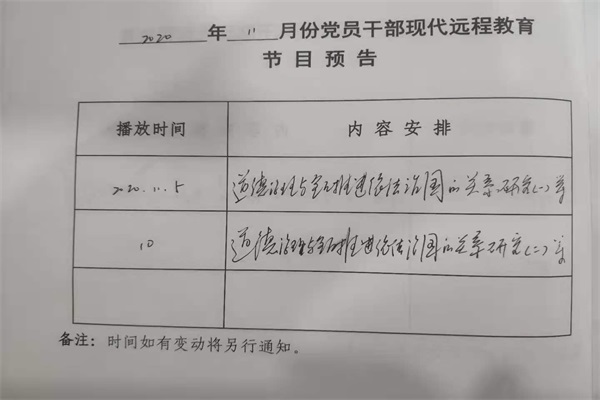 2020 年 11 月份党员干部现代远程教育
节目预告
播放时间 内容安排
2020.11.5 道德治理与全面推进依法治国的关系研究(一)等
10 道德治理与全面推进依法治国的关系研究(二)等
备注：时间如有变动将另行通知。